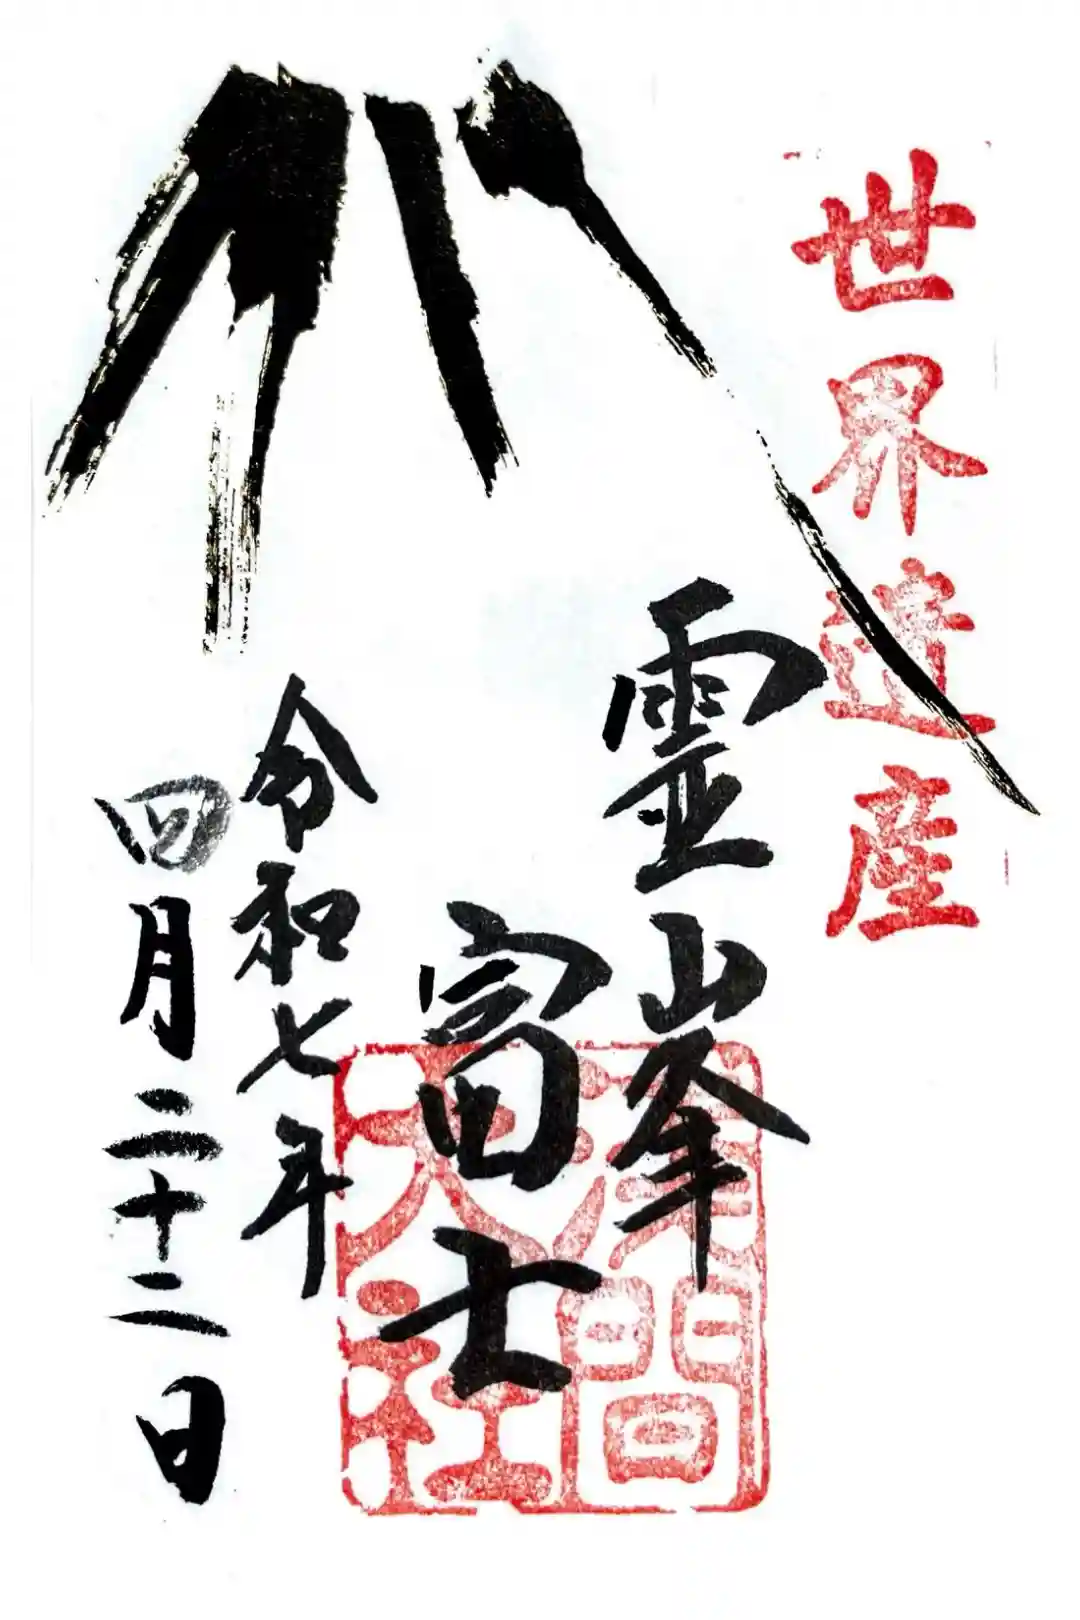 世界遺産
霊峯
富士
淺間
大社
令和七年
四月二十二日